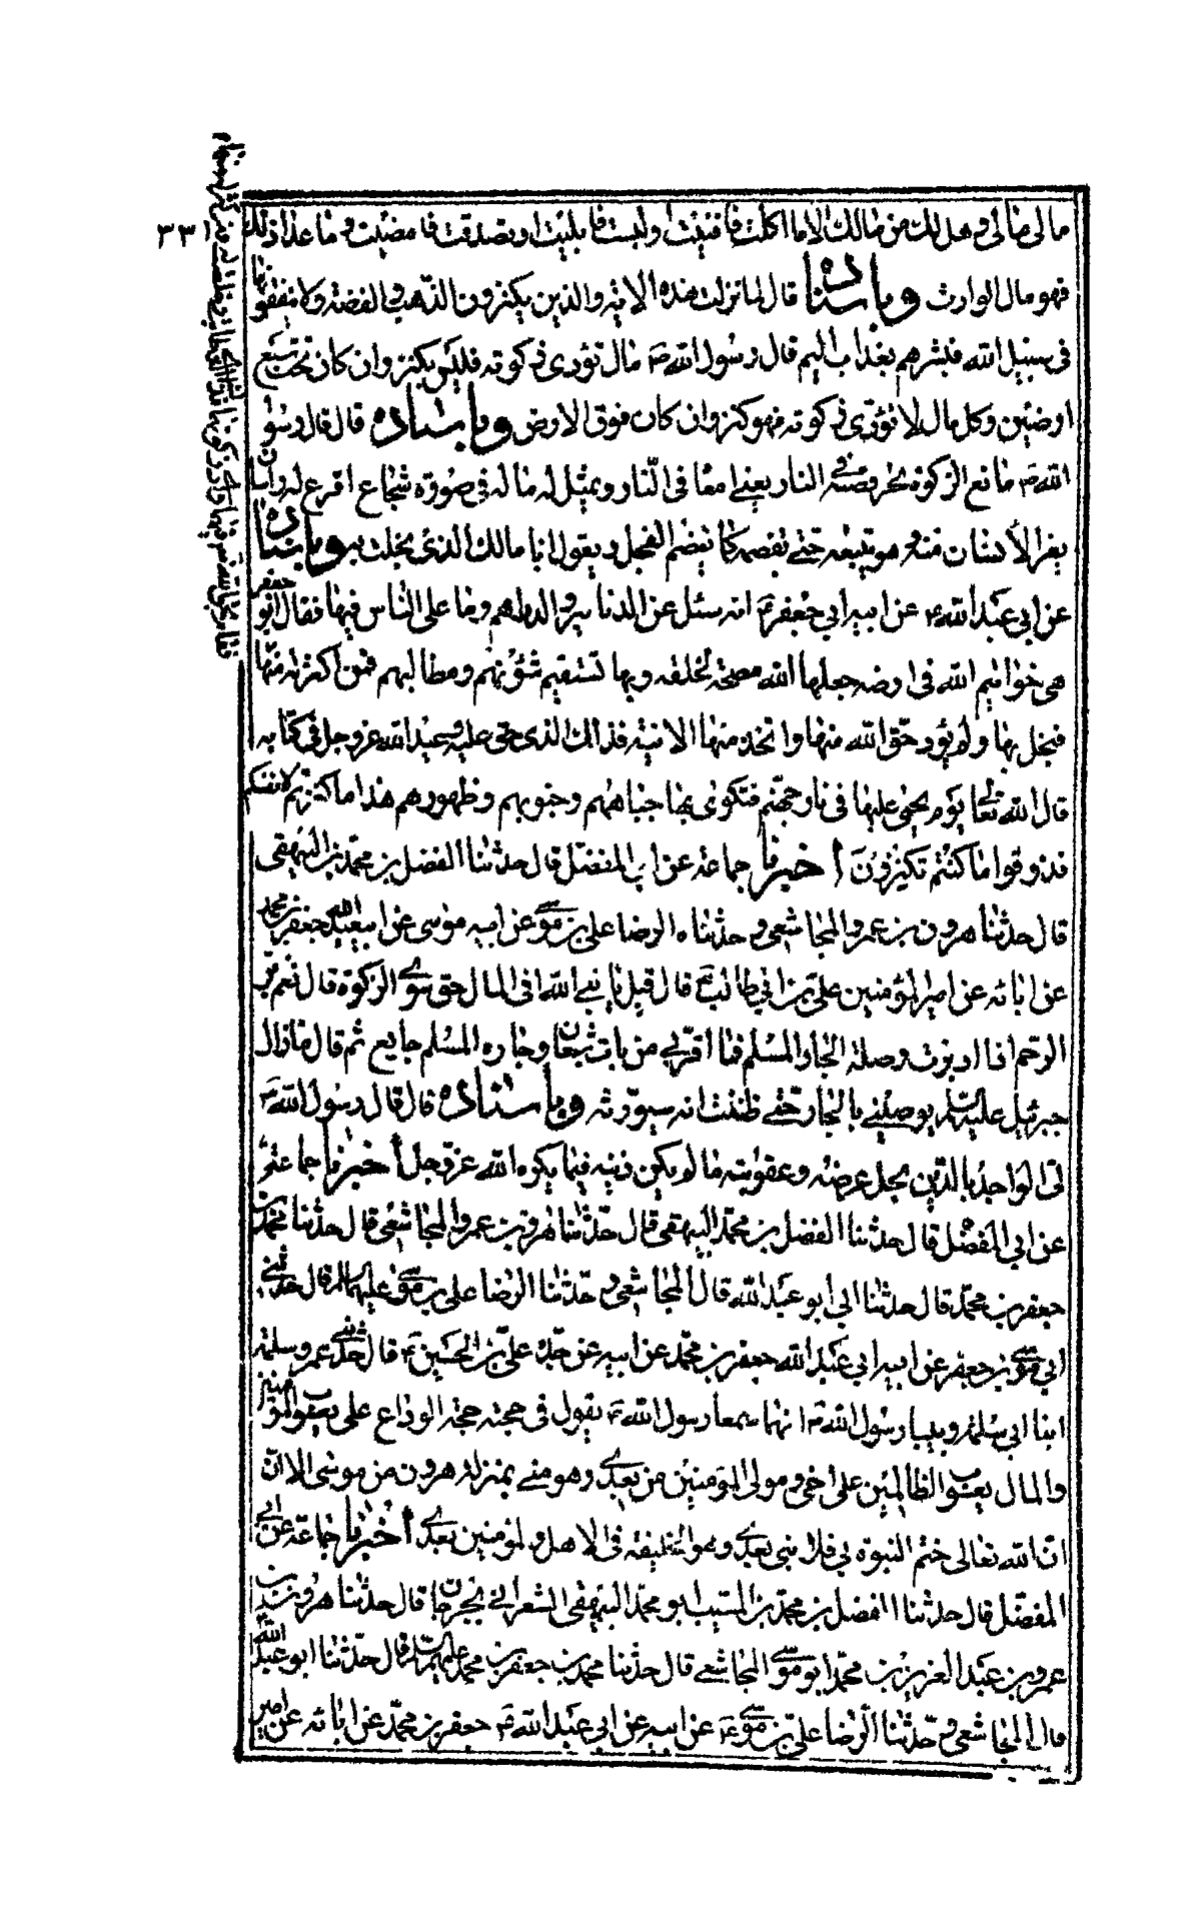 مالى مالى وهل لك من مالك الا ما اكلت فافنيت او لبست فابليت او تصدقت فامضيت وما عدا ذلك
فهو مال الوارث وباسناده قال لما نزلت هذه الاية والذين يكنزون الذهب والفضة ولا ينفقونها
فى سبيل الله فبشرهم بعذاب اليم قال رسول الله ص مال تؤدى زكوته فليس بكنز وان كان تحت سبع
ارضين وكل مال لا تؤدى زكوته فهو كنز وان كان فوق الارض وباسناده قال قال رسول
الله ص مانع الزكوة يجر قصبه فى النار يعنى امعاه فى النار ويمثل له ماله فى صورة شجاع اقرع له زبيبتان
يفر الانسان منه وهو يتبعه حتى يقضمه كما يقضم الفجل ويقول انا مالك الذى بخلت به وباسناده
عن ابى عبد الله ع عن ابيه ابى جعفر ع انه سئل عن الدنانير والدراهم وما على الناس فيها فقال ابو جعفر
هى خواتيم الله فى ارضه جعلها الله مصحة لخلقه وبها تستقيم شؤنهم ومطالبهم فمن اكثر له منها
فبخل بها ولم يؤد حق الله منها واتخذ منها الانية فذاك الذى حق عليه وعيد الله عز وجل فى كتابه
قال الله تعالى يوم يحمى عليها فى نار جهنم فتكوى بها جباههم وجنوبهم وظهورهم هذا ما كنزتم لانفسكم
فذوقوا ما كنتم تكنزون أخبرنا جماعة عن ابى المفضل قال حدثنا الفضل بن محمد بن البيهقى
قال حدثنا هرون بن عمرو المجاشعى وحدثناه الرضا على بن موسى عن ابيه موسى عن ابيه ابى عبد الله جعفر بن محمد
عن ابائه عن امير المؤمنين على بن ابى طالب ع قال قيل يا نبى الله افى المال حق سوى الزكوة قال نعم بر
الرحم اذا ادبرت وصلة الجار المسلم فما اقر بى من بات شبعان وجاره المسلم جايع ثم قال ما زال
جبرئيل عليه السلام يوصينى بالجار حتى ظننت انه سيورثه وباسناده قال قال رسول الله ص
لى الواجد بالدين يحل عرضه وعقوبته ما لم يكن دينه فيما يكره الله عز وجل أخبرنا جماعة
عن ابى المفضل قال حدثنا الفضل بن محمد البيهقى قال حدثنا هرون بن عمرو المجاشعى قال حدثنا محمد بن
جعفر بن محمد قال حدثنا ابى ابو عبد الله قال المجاشعى وحدثنا الرضا على بن موسى عليهما السلام قال حدثنى
ابى موسى بن جعفر عن ابيه ابى عبد الله جعفر بن محمد عن ابيه عن جده على بن الحسين ع قال حدثنى عمر وسلمة
ابنا ابى سلمة ربيبا رسول الله ص انهما سمعا رسول الله ص يقول فى حجته حجة الوداع على يعسوب المؤمنين
والمال يعسوب الظالمين على اخى ومولى المؤمنين من بعدى وهو منى بمنزلة هرون من موسى الا ان
ان الله تعالى ختم النبوة بى فلا نبى بعدى وهو الخليفة فى الاهل والمؤمنين بعدى أخبرنا جماعة عن ابى
المفضل قال حدثنا الفضل بن محمد بن المسيب ابو محمد البيهقى الشعرانى بجرجان قال حدثنا هرون بن
عمرو بن عبد العزيز بن محمد ابو موسى المجاشعى قال حدثنا محمد بن جعفر بن محمد عليهم السلام قال حدثنا ابو عبد الله
قال المجاشعى وحدثنا الرضا على بن موسى ع عن ابيه عن ابى عبد الله ع جعفر بن محمد عن ابائه عن امير
٣٣١